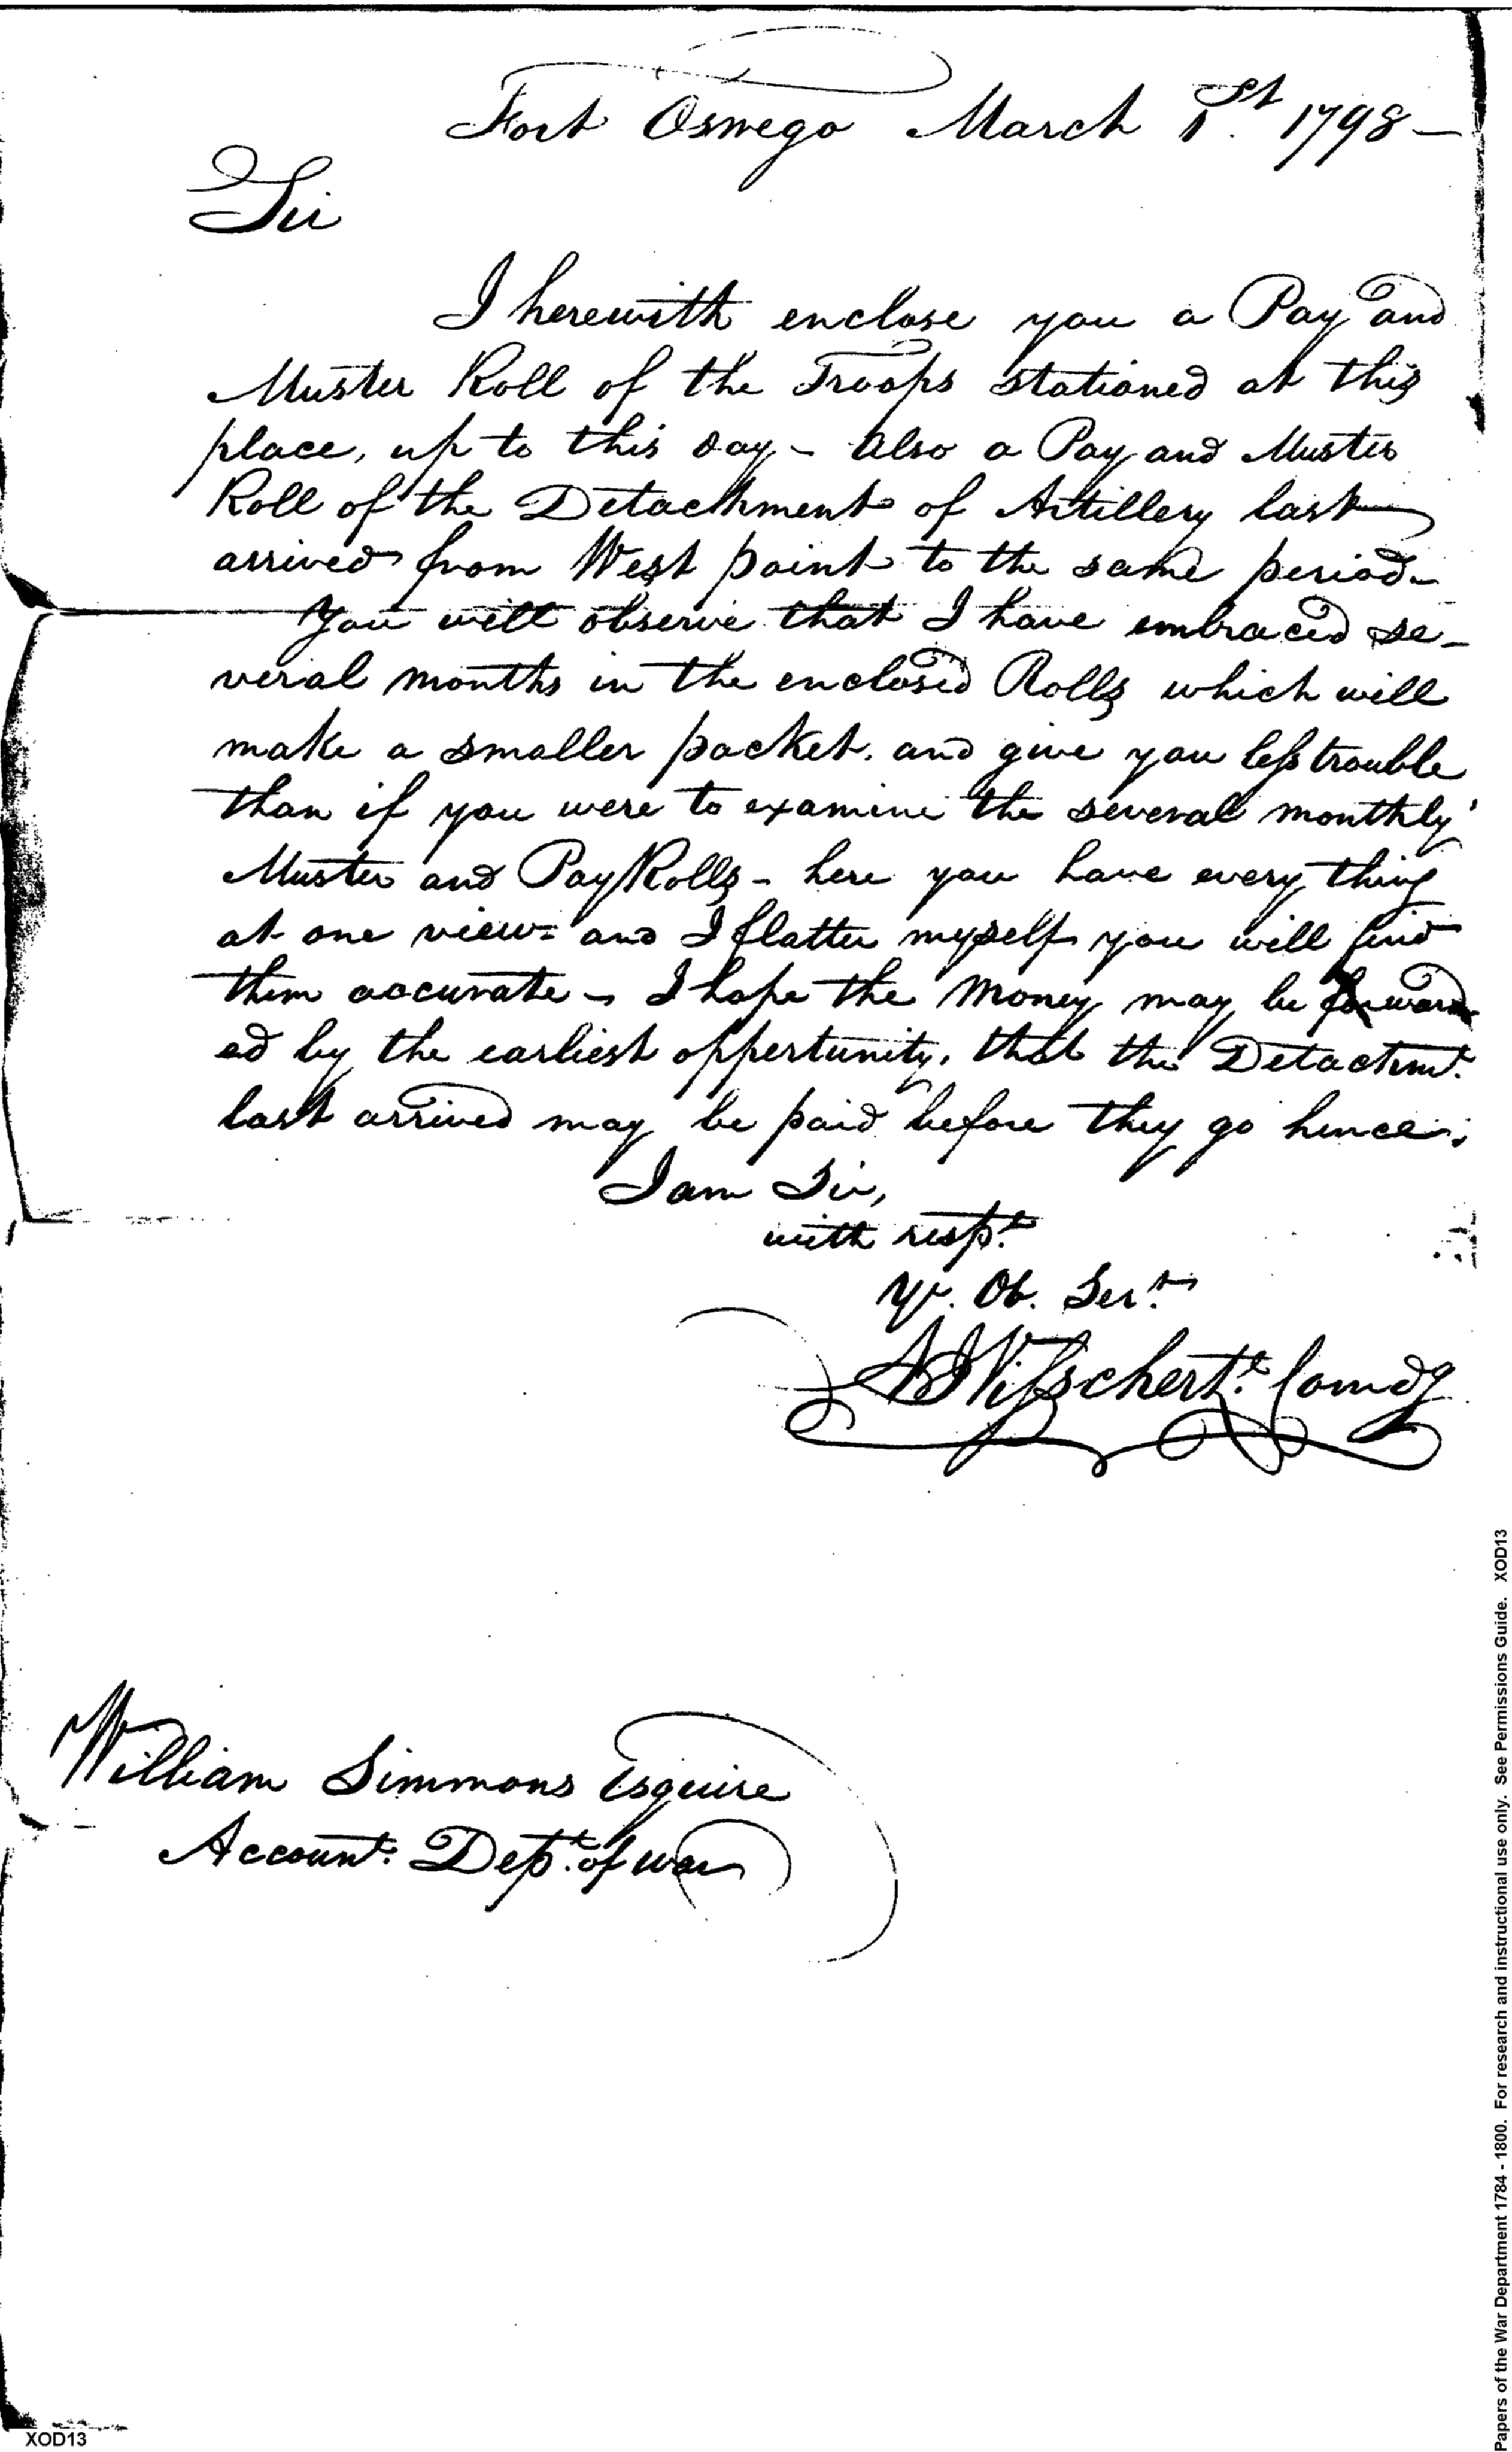 Fort Oswego March 1st 1798 -
Sir
I herewith enclose you a Pay and
Muster Roll of the Troops stationed at this
place, up to this day - Also a Pay and Muster
Roll of the Detachment of Artillery last
arrived from West point to the same period -
You will observe that I have embraced se-
veral months in the enclosed Rolls which will
make a smaller packet. and give you less trouble
than if you were to examine the several monthly
Muster and Pay Rolls - here you have every thing
at one view = and I flatter myself you will find
them accurate - I hope the Money may be forward
ed by the earliest oppertunity, that the Detachmt.
last arrived may be paid before they go hence.
I am Sir,
with respt.
Yr. Ob. Sert.
Comdg
William Simmons Esquire
Accountt. Dept. of war
XOD13
Papers of the War Department 1784 - 1800. For research and instructional use only. See Permissions Guide. XOD13